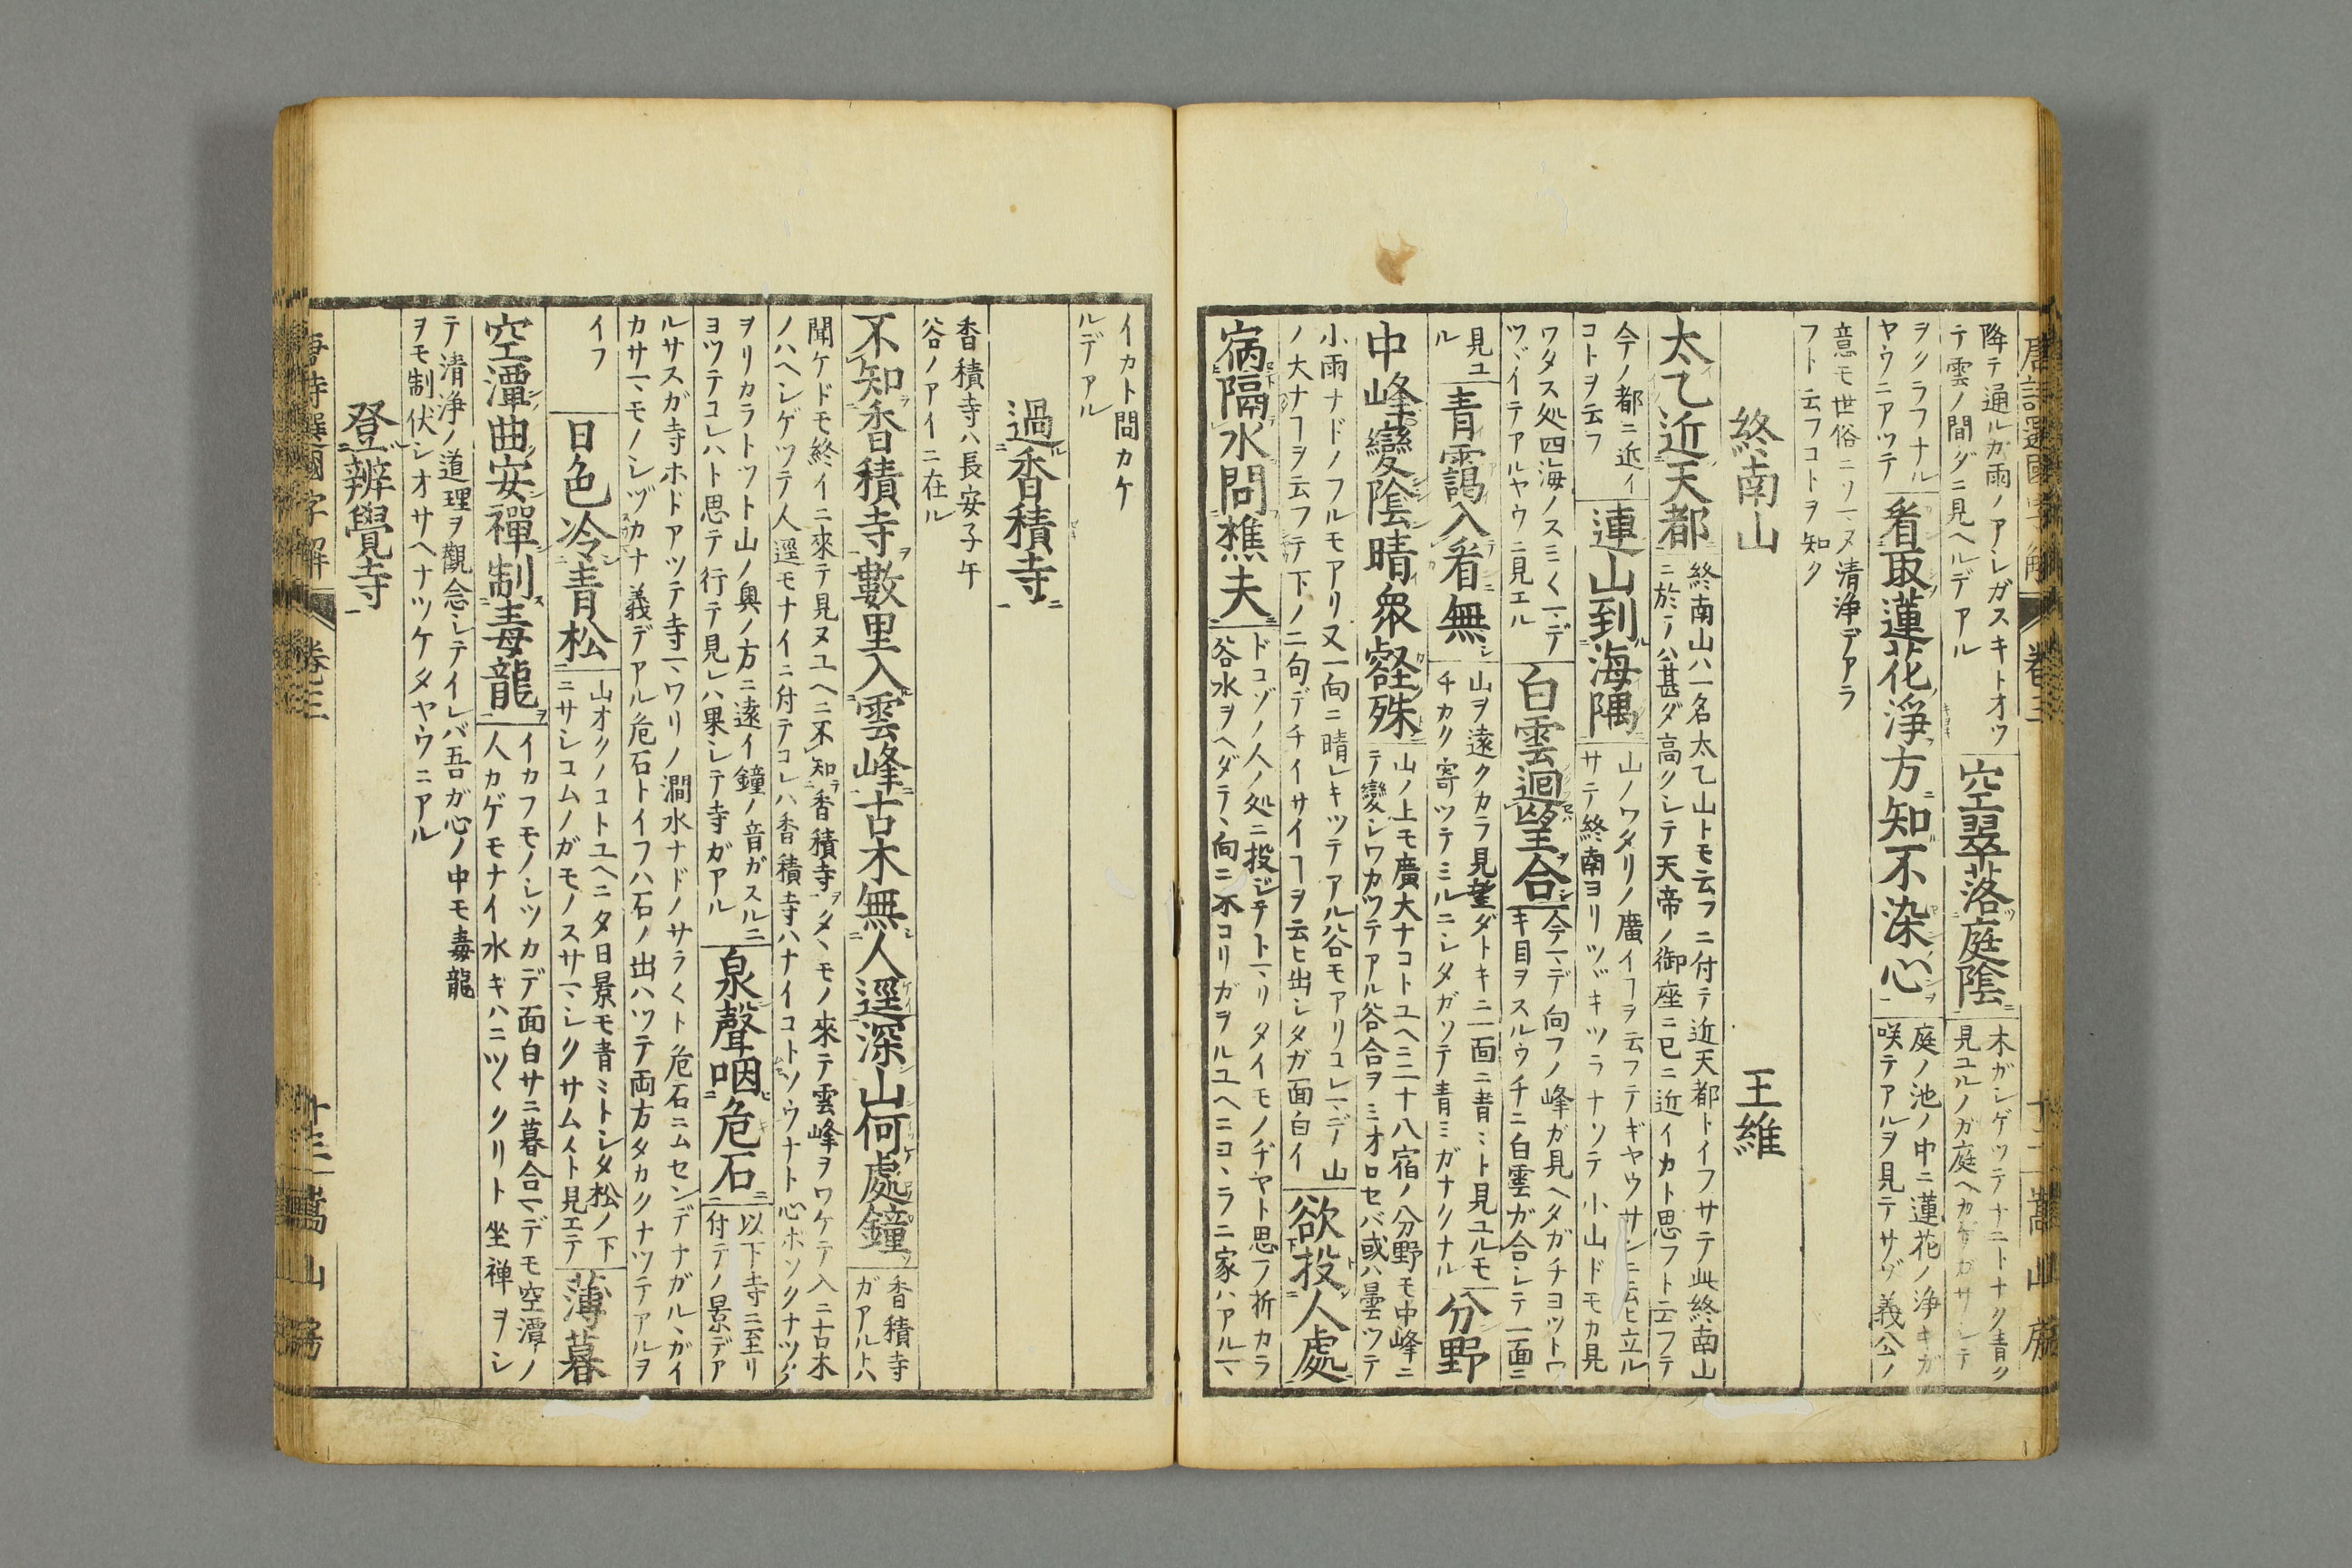 降テ通ルカ雨ノアシガスキトオツ
テ雲ノ間ダニ見ヘルデアル
空翠落庭陰
木ガシゲツテナニトナク青ク
見ユルノガ庭ヘカゲガサシテ
ヲクラフナル
ヤウニアツテ
看取蓮花淨方知不染心
庭ノ池ノ中ニ蓮花ノ浄キガ
咲テアルヲ見テサゾ義公ノ
意モ世俗ニソマヌ清浄デアラ
フト云フコトヲ知ク
終南山
王維
太乙近天都
終南山ハ一名太乙山トモ云フニ付テ近天都トイフサテ此終南山
ニ於テハ甚ダ高クシテ天帝ノ御座ニ已ニ近イカト思フト云フテ
今ノ都ニ近イ
コトヲ云フ
連山到海隅
山ノワタリノ廣イヿヲ云フテギヤウサンニ云ヒ立ル
サテ終南ヨリツヾキツラナツテ小山ドモカ見
ワタス処四海ノスミ〱マデ
ツヾイテアルヤウニ見エル
白雲迴望合
今マデ向フノ峰ガ見ヘタガチヨツトウ
キ目ヲスルウチニ白雲ガ合シテ一面ニ
見ユ
ル
青靄入看無
山ヲ遠クカラ見望ダトキニ一面ニ青ミト見ユルモ
チカク寄ツテミルニシタガツテ青ミガナクナル
分野
中峰變陰晴衆壑殊
山ノ上モ廣大ナコトユヘ二十八宿ノ分野モ中峰ニ
テ變シワカツテアル谷合ヲミオロセバ或ハ曇ツテ
小雨ナドノフルモアリ又一向ニ晴レキツテアル谷モアリコレマデノ山
ノ大ナヿヲ云フテ下ノ二句デチイサイヿヲ云ヒ出シタガ面白イ
欲投人處
宿隔水問樵夫
ドコゾノ人ノ処ニ投ジテトマリタイモノヂヤト思フ折カラ
谷水ヲヘダテヽ向ニ木コリガヲルユヘニヨヽラニ家ハアルマヽ
イカト問カケ
ルデアル
過香積寺
香積寺ハ長安子午
谷ノアイニ在ル
不知香積寺數里入雲峰古木無人逕深山何處鐘
香積寺
ガアル上ハ
聞ケドモ終イニ來テ見ヌユヘニ不知香積寺ヲタヽモノ來テ雲峰ヲワケテ入ニ古木
ノハヘシゲツテ人逕モナイニ付テコレハ香積寺ハナイコトソウナト心ボソクナツ
ヲリカラトツト山ノ奥ノ方ニ遠イ鐘ノ音ガスルニ
ヨツテコレハト思テ行テ見レハ果シテ寺ガアル
泉聲咽危石
以下寺ニ至リ
付テノ景デア
ルサスガ寺ホドアツテ寺マワリノ澗水ナドノサラ〱ト危石ニムセンデナガルヽガイ
カサマモノシヅカナ義デアル危石トイフハ石ノ出ハツテ両方タカクナツテアルヲ
イフ
日色冷青松
山オクノコトユヘニ夕日景モ青ミトシタ松ノ下
ニサシコムノガモノスサマシクサムイト見エテ
薄暮
空潭曲安禪制毒龍
イカフモノシツカデ面白サニ暮合マデモ空潭ノ
人カゲモナイ水ギハニツヽクリト坐禅ヲシ
テ清浄ノ道理ヲ觀念シテイレバ吾ガ心ノ中モ毒龍
ヲモ制伏シオサヘナツケタヤウニアル
登辨覺寺
唐詩選國字解 卷三